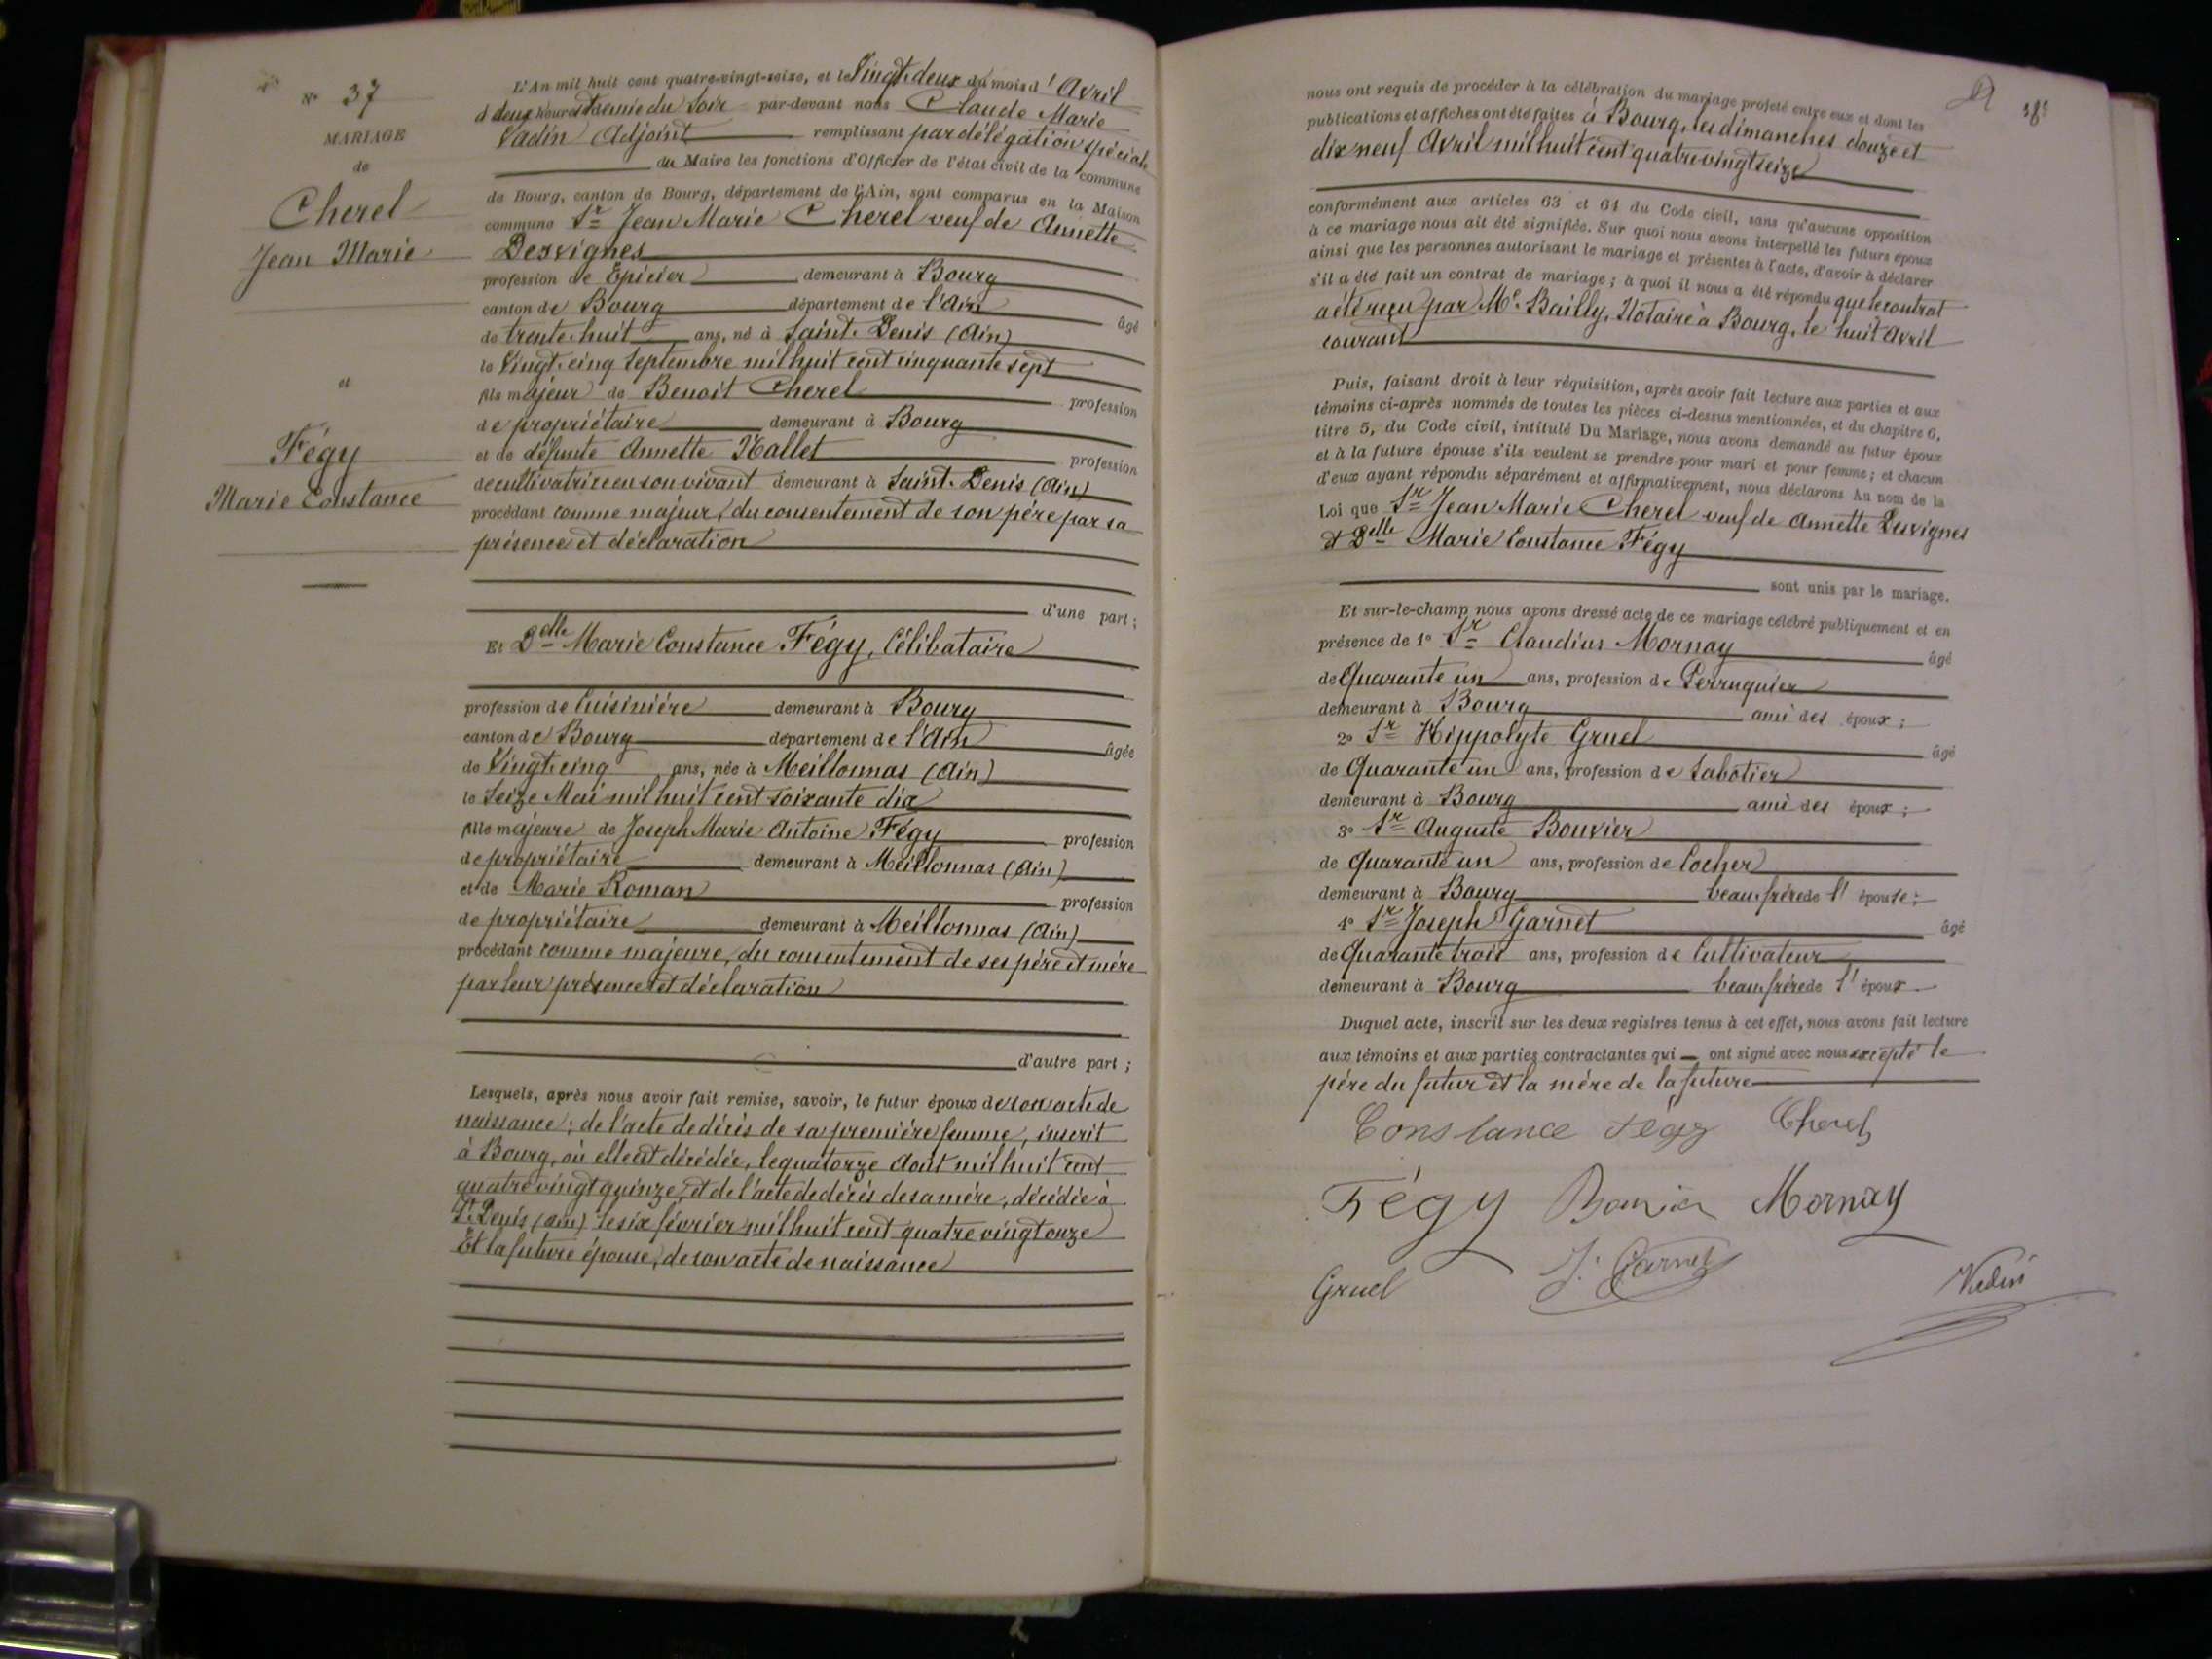 N° 37
MARIAGE
de
Cherel
Jean Marie
et
Fégy
Marie Constance
L'An mil huit cent quatre-vingt-seize, et le Vingt-deux du mois d'Avril
à deux heures et demie du soir par-devant nous Claude Marie
Vadin Adjoint remplissant par délégation spéciale
du Maire les fonctions d'Officier de l'état civil de la commune
de Bourg, canton de Bourg, département de l'Ain, sont comparus en la Maison
commune Sr Jean Marie Cherel veuf de Annette
Desvignes
profession de Epicier demeurant à Bourg
canton de Bourg département de l'Ain âgé
de trente-huit ans, né à Saint-Denis (Ain)
le Vingt-cinq Septembre mil huit cent cinquante sept
fils majeur de Benoit Cherel profession
de propriétaire demeurant à Bourg
et de défunte Annette Hallet profession
de cultivatrice en son vivant demeurant à Saint-Denis (Ain)
procédant comme majeur, du consentement de son père par sa
présence et déclaration
d'une part;
Et Delle Marie Constance Fégy, Célibataire
profession de Cuisinière demeurant à Bourg
canton de Bourg département de l'Ain âgée
de Vingt-cinq ans, née à Meillonnas (Ain)
le Seize Mai mil huit cent soixante dix
fille majeure de Joseph Marie Antoine Fégy profession
de propriétaire demeurant à Meillonnas (Ain)
et de Marie Roman profession
de propriétaire demeurant à Meillonnas (Ain)
procédant comme majeure, du consentement de ses père et mère
par leur présence et déclaration
d'autre part;
Lesquels, après nous avoir fait remise, savoir, le futur époux de son acte de
naissance; de l'acte de décès de sa première femme, inscrit
à Bourg, où elle est décédée, le quatorze Août mil huit cent
quatre vingt quinze; et de l'acte de décès de sa mère, décédée à
St Denis (Ain) le six février mil huit cent quatre vingt onze
Et la future épouse, de son acte de naissance
38e
nous ont requis de procéder à la célébration du mariage projeté entre eux et dont les
publications et affiches ont été faites à Bourg, les dimanches douze et
dix neuf Avril mil huit cent quatre vingt seize
conformément aux articles 63 et 64 du Code civil, sans qu'aucune opposition
à ce mariage nous ait été signifiée. Sur quoi nous avons interpellé les futurs époux
ainsi que les personnes autorisant le mariage et présentes à l'acte, d'avoir à déclarer
s'il a été fait un contrat de mariage; à quoi il nous a été répondu que le contrat
a été reçu par Me Bailly, Notaire à Bourg, le huit Avril
courant
Puis, faisant droit à leur réquisition, après avoir fait lecture aux parties et aux
témoins ci-après nommés de toutes les pièces ci-dessus mentionnées, et du chapitre 6,
titre 5, du Code civil, intitulé Du Mariage, nous avons demandé au futur époux
et à la future épouse s'ils veulent se prendre pour mari et pour femme; et chacun
d'eux ayant répondu séparément et affirmativement, nous déclarons Au nom de la
Loi que Sr Jean Marie Cherel veuf de Annette Desvignes
et Delle Marie Constance Fégy
sont unis par le mariage.
Et sur-le-champ nous avons dressé acte de ce mariage célébré publiquement et en
présence de 1° Sr Claudius Mornay âgé
de Quarante un ans, profession de Perruquier
demeurant à Bourg ami des époux;
2° Sr Hippolyte Gruel âgé
de Quarante un ans, profession de Sabotier
demeurant à Bourg ami des époux;
3° Sr Auguste Bouvier
de quarante un ans, profession de Cocher
demeurant à Bourg beau-frère de l'épouse;
4° Sr Joseph Garnet âgé
de Quarante trois ans, profession de Cultivateur
demeurant à Bourg beau-frère de l'époux
Duquel acte, inscrit sur les deux registres tenus à cet effet, nous avons fait lecture
aux témoins et aux parties contractantes qui ont signé avec nous excepté le
père du futur et la mère de la future
Constance Fégy Cherel
Fégy Bouvier Mornay
Gruel J. Garnet Vadin